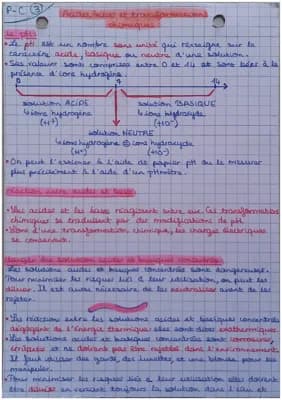 P-C (3)
Acides, bases et transformations
chimiques :
Le pH :
• Le pH est un nombre sans unité qui renseigne sur le
caractère acide, basique ou neutre d'une solution.
• Ses valeurs sont comprises entre 0 et 14 et sont liées à la
présence d'ions hydrogène.
0 7 14
solution ACIDE solution BASIQUE
↳ ions hydrogène ↳ ions hydroxyde
(H+) (HO-)
solution NEUTRE
↳ ions hydrogène = ions hydroxyde
(H+) (HO-)
• On peut l'estimer à l'aide de papier pH ou le mesurer
plus précisément à l'aide d'un pHmètre.
réaction entre acides et bases
• Les acides et les bases réagissent entre eux. Ces transformations
chimiques se traduisent par des modifications de pH.
• Lors d'une transformation chimique, les charges électriques
se conservent.
danger des solutions acides et basiques concentrées
• Les solutions acides et basiques concentrées sont dangereuses.
Pour minimiser les risques liés à leur utilisation, on peut les
diluer. Il est aussi nécessaire de les neutraliser avant de les
rejeter.
• Les réactions entre les solutions acides et basiques concentrées
dégagent de l'énergie thermique : elles sont dites exothermiques.
• Les solutions acides et basiques concentrées sont corrosives,
irritantes et ne doivent pas être rejetées dans l'environnement.
Il faut utiliser des gants, des lunettes et une blouse pour les
manipuler.
• Pour minimiser les risques liés à leur utilisation elles doivent
être diluées en versant toujours la solution dans l'eau et